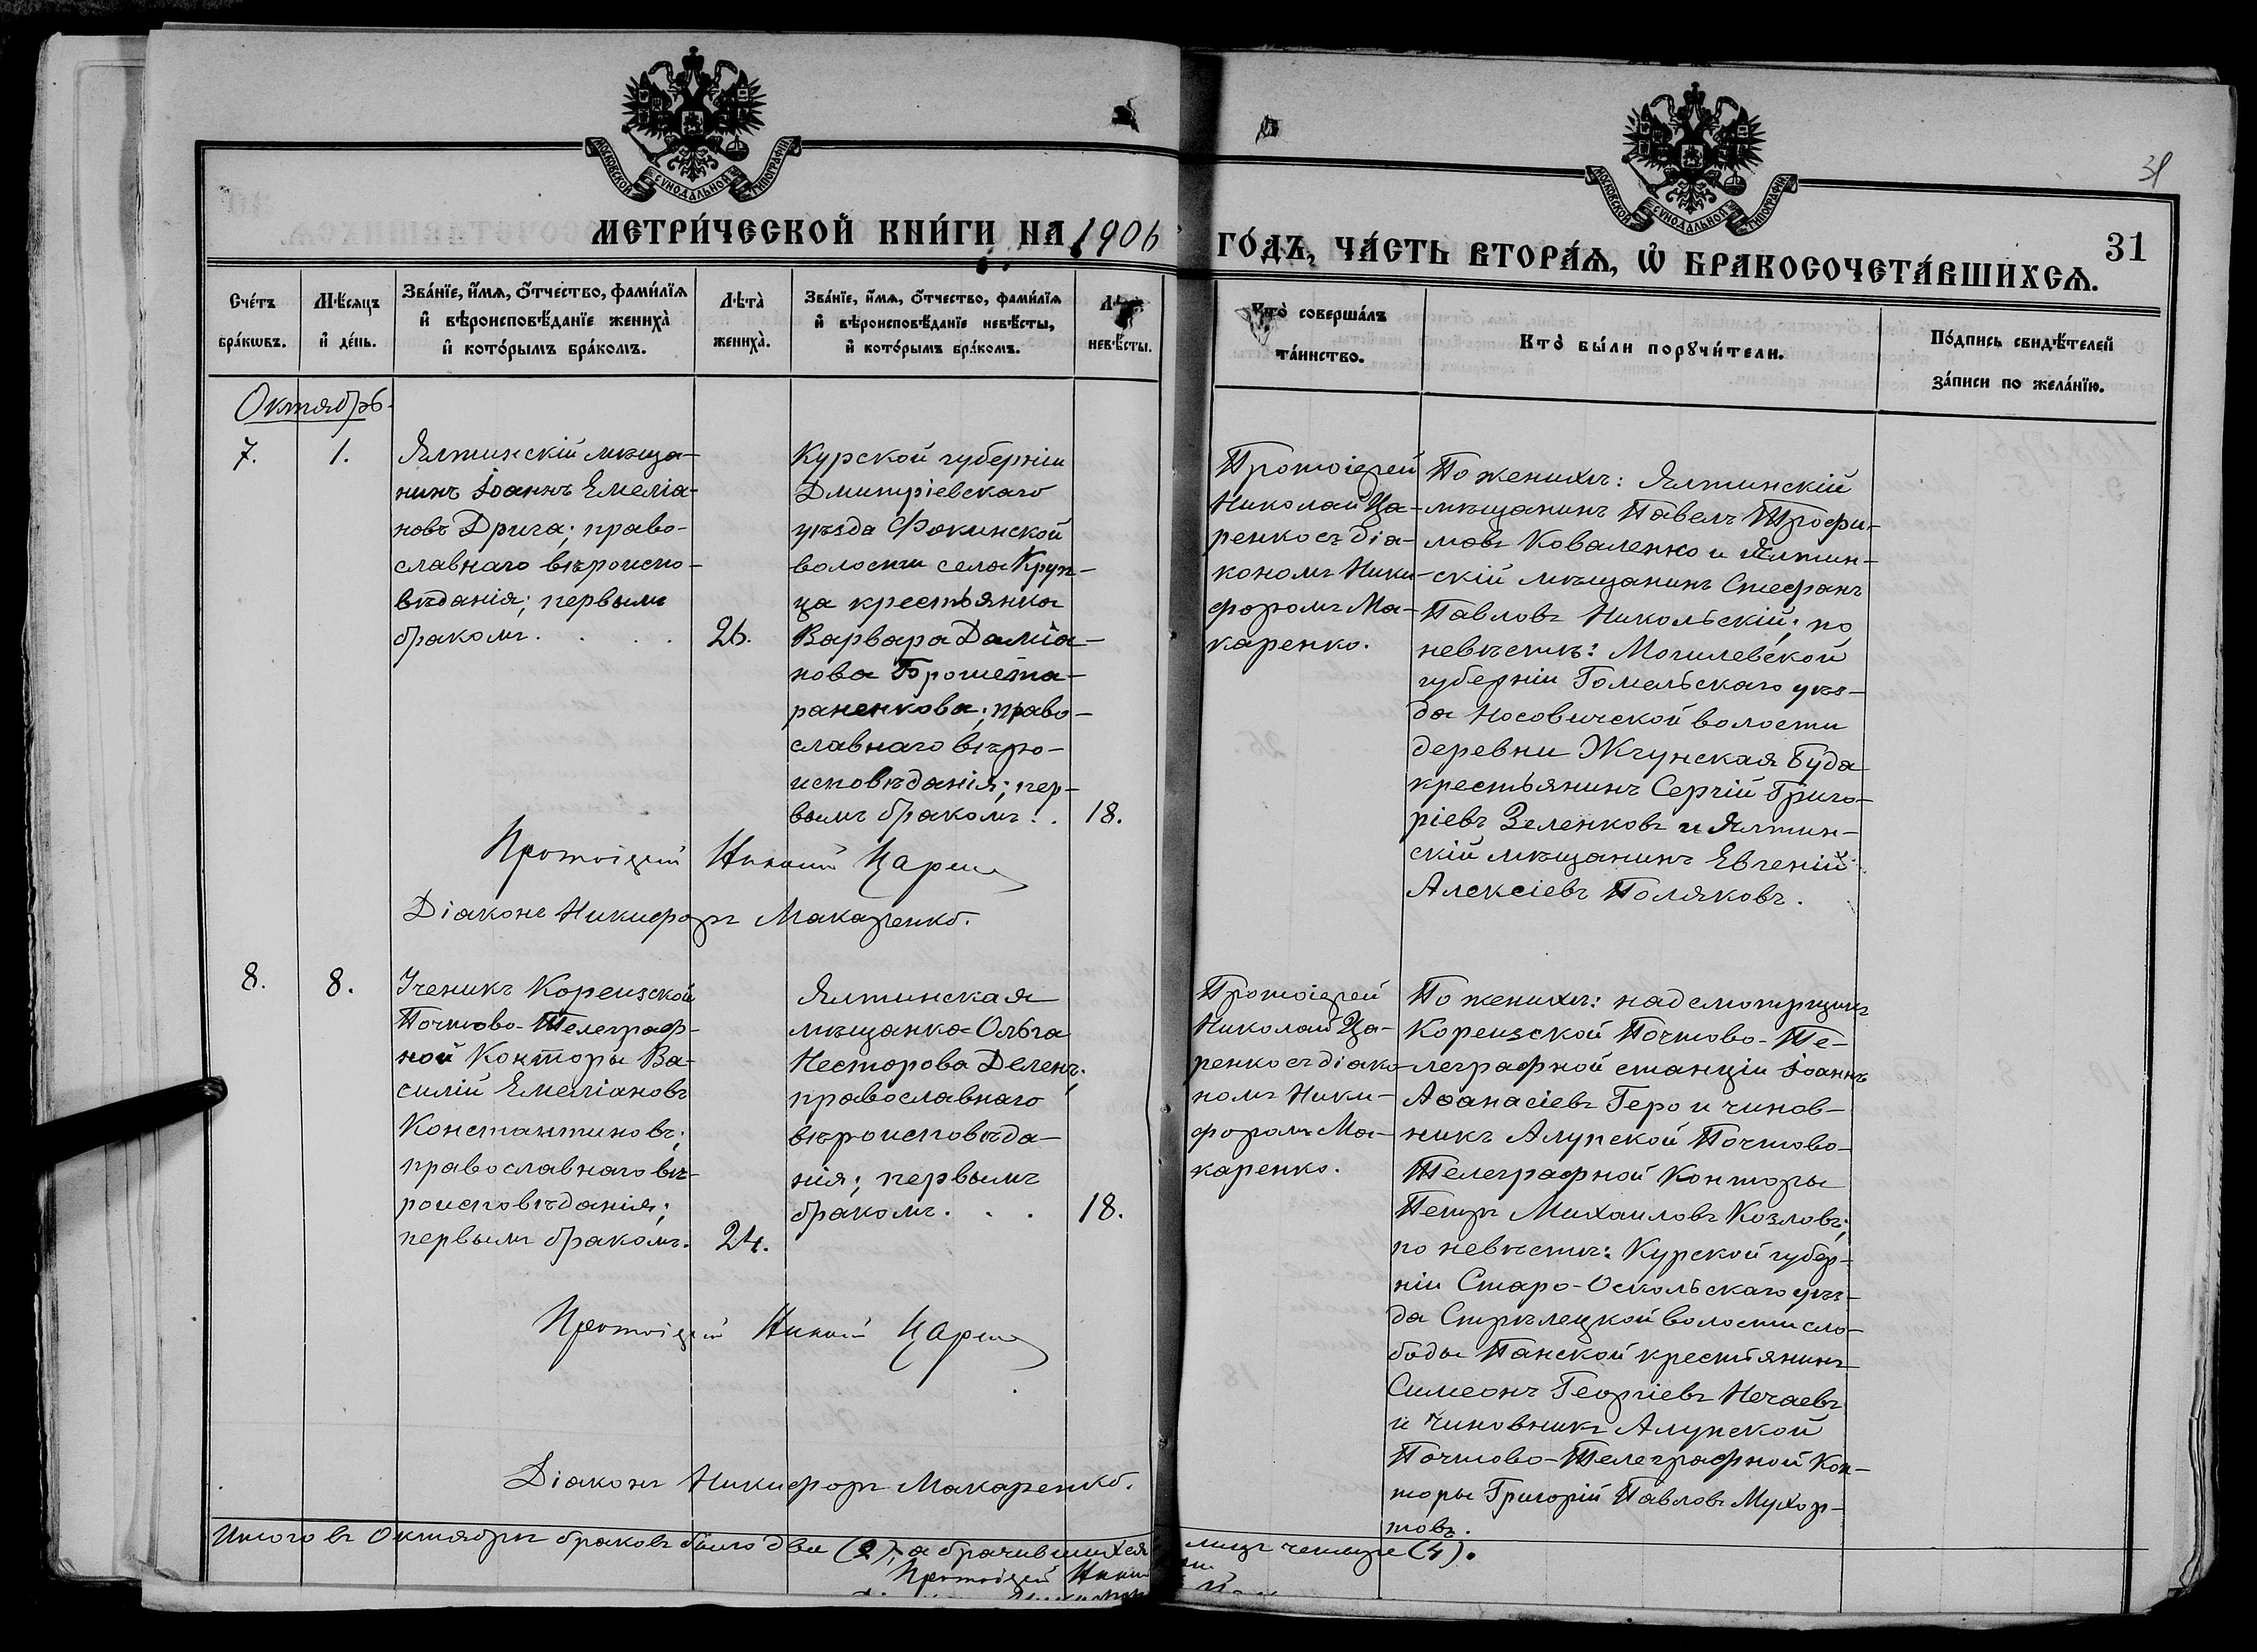 МОСКОВСКОЙ СѴНОДАЛЬНОЙ ТИПОГРАФІИ
МОСКОВСКОЙ СѴНОДАЛЬНОЙ ТИПОГРАФІИ
31
МЕТРИ́ЧЕСКОЙ КНИ́ГИ НА 1906
ГО́ДЪ, ЧА́СТЬ ВТОРА́Я, Ѡ҆ БРАКОСОЧЕТА́ВШИХСѦ.
31
Сче́тъ
бра́кѡвъ.
Мѣ́сяцъ
и҆ де́нь.
Зва́нїе, и҆́мѧ, ѻ҆́тчество, фами́лїѧ
и҆ вѣроисповѣ́данїе жениха̀
и҆ кото́рымъ бра́комъ.
Лѣта̀
жениха̀.
Зва́нїе, и҆́мѧ, ѻ҆́тчество, фами́лїѧ
и҆ вѣроисповѣ́данїе невѣ́сты,
и҆ кото́рымъ бра́комъ.
невѣ́сты.
Кто̀ соверша́лъ
та́инство.
Кто̀ бы́ли порꙋчи́тели.
По́дпись свидѣ́телей
за́писи по жела́нїю.
Октябрь.
7.
1.
Ялтинскій мѣща-
нинъ Іоаннъ Емеліа-
новъ Дрига; право-
славнаго вѣроиспо-
вѣданія; первымъ
бракомъ . . .
26.
Курской губерніи
Дмитріевскаго
уѣзда Фокинской
волости села Круп-
ца крестьянка
Варвара Даміа-
нова Брошета-
раненкова; право-
славнаго вѣро-
исповѣданія; пер-
вымъ бракомъ . .
18.
Протоіерей
Николай Ца-
ренко съ діа-
кономъ Ники-
форомъ Ма-
каренко.
По женихѣ: Ялтинскій
мѣщанинъ Павелъ Трофи-
мовъ Коваленко и Ялтин-
скій мѣщанинъ Стефанъ
Павловъ Никольскій; по
невѣстѣ: Могилевской
губерніи Гомельскаго уѣз-
да Носовичской волости
деревни Жгунская Буда
крестьянинъ Сергій Григо-
ріевъ Зеленковъ и Ялтин-
скій мѣщанинъ Евгеній
Алексіевъ Поляковъ.
Протоіерей Николай Царенко
Діаконъ Никифоръ Макаренко.
8.
8.
Ученикъ Кореизской
Почтово-Телеграф-
ной Конторы Ва-
силій Емеліановъ
Константиновъ;
православнаго вѣ-
роисповѣданія;
первымъ бракомъ.
24.
Ялтинская
мѣщанка Ольга
Несторова Деленъ;
православнаго
вѣроисповѣда-
нія; первымъ
бракомъ . . .
18.
Протоіерей
Николай Ца-
ренко съ діако-
номъ Ники-
форомъ Ма-
каренко.
По женихѣ: надсмотрщикъ
Кореизской Почтово-Те-
леграфной станціи Іоаннъ
Аѳанасіевъ Геро и чинов-
никъ Алупской Почтово-
Телеграфной Конторы
Петръ Михаиловъ Козловъ;
по невѣстѣ: Курской губер-
ніи Старо-Оскольскаго уѣз-
да Стрѣлецкой волости сло-
боды Панской крестьянинъ
Симеонъ Георгіевъ Нечаевъ
и Чиновникъ Алупской
Почтово-Телеграфной Кон-
торы Григорій Павловъ Мухор-
товъ.
Протоіерей Николай Царенко
Діаконъ Никифоръ Макаренко.
Итого въ Октябрѣ браковъ было два (2), а брачившихся лицъ четыре (4).
Протоіерей